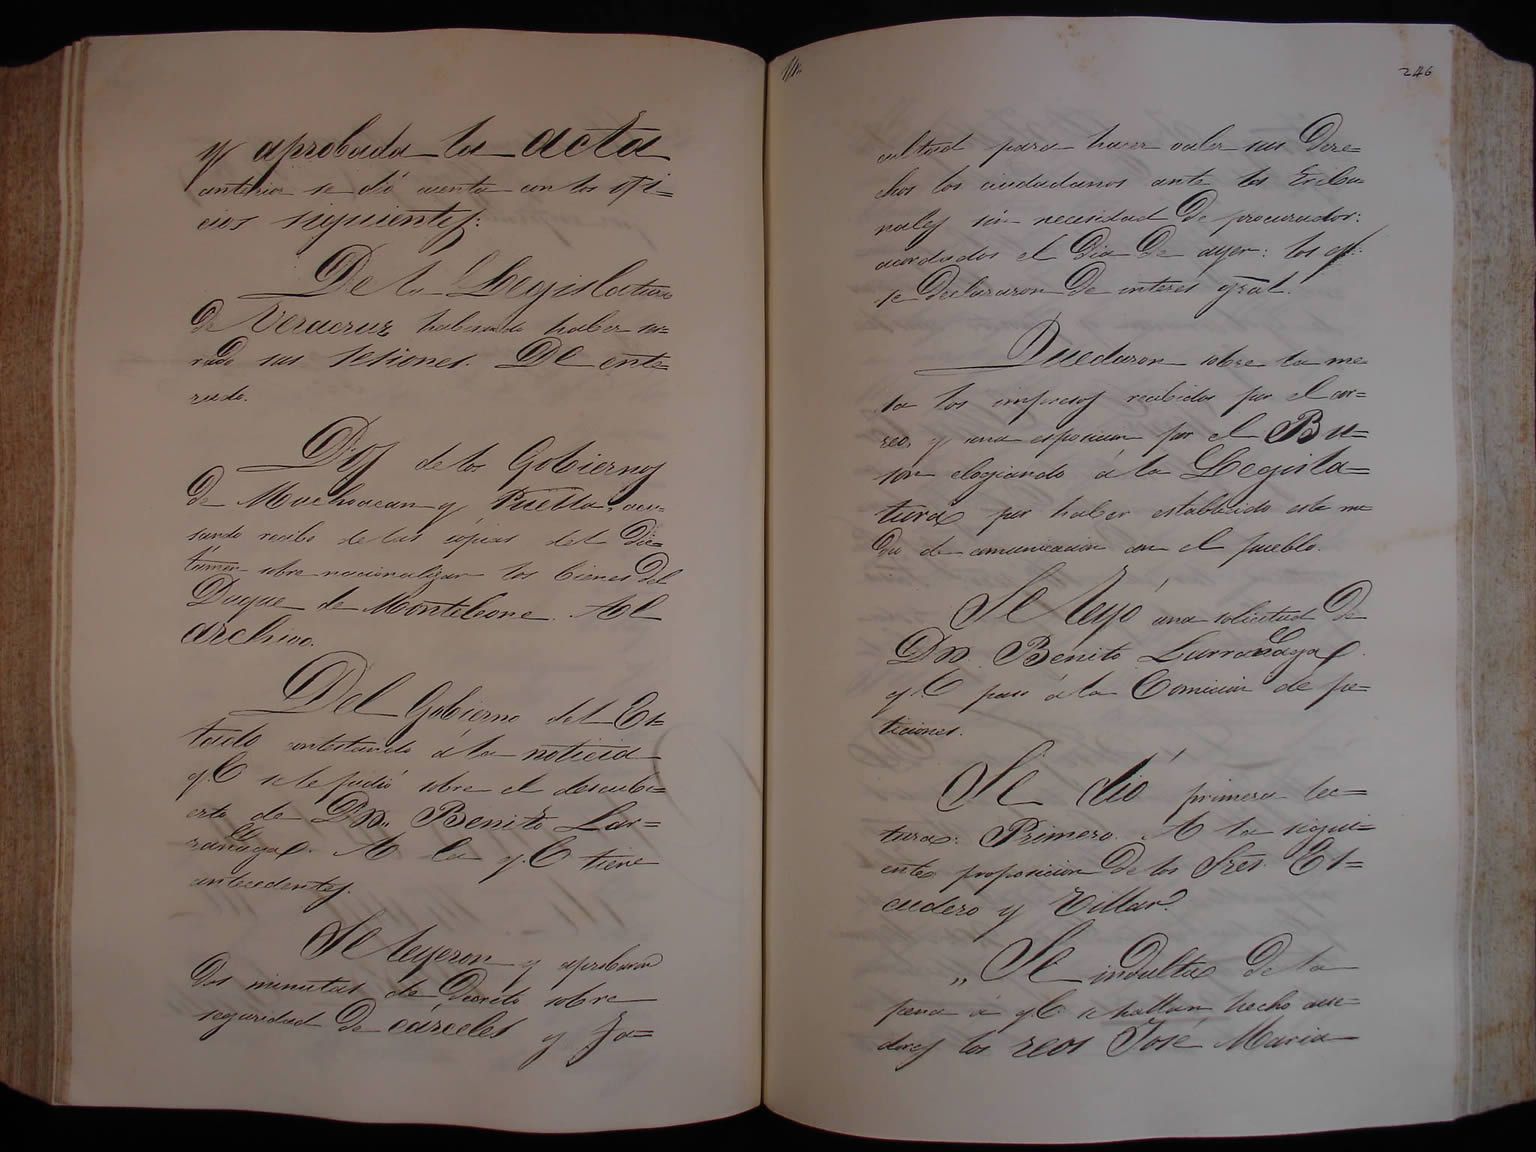 y aprobada la acta
anterior se dió cuenta con los ofi-
cios siguientes:
De la Legislatura
de Veracruz habiendo haber cer-
rado sus sesiones. De ente-
rado.
Dos de los Gobiernos
de Machoacan y Puebla, acu-
sando recibo de las cópias del Dic-
támen sobre nacionalizar los bienes del
Duque de Monteleone. Al
archivo.
Del Gobierno del Es-
tado contestando á la noticia
q.e se le pidió sobre el descubi-
erto de Dn. Benito Lar-
rañaga. A la q.e tiene
antecedentes.
Se leyeron y aprobaron
dos minutas de Decreto sobre
seguridad de cárceles y fa-
246
cultad para hacer valer sus Dere-
chos los ciudadanos ante los Tribu-
nales sin necesidad de procurador:
acordados el dia de ayer: los q.e
se declararon de interes gral.
Quedaron sobre la me-
sa los impresos recibidos por el cor-
reo, y una esposicion por el Bu-
son elogiando á la Legisla-
tura por haber establecido este me-
dio de comunicacion con el pueblo.
Se leyó una solicitud de
Dn. Benito Larrañaga
q.e pasó á la Comicion de pe-
ticiones.
Se dió primera lec-
tura: Primero. A la sigui-
ente proposicion de los Sres. Es-
cudero y Villar.
„Se indulta de la
pena á q.e se hallan hecho acre-
dores los reos José Maria